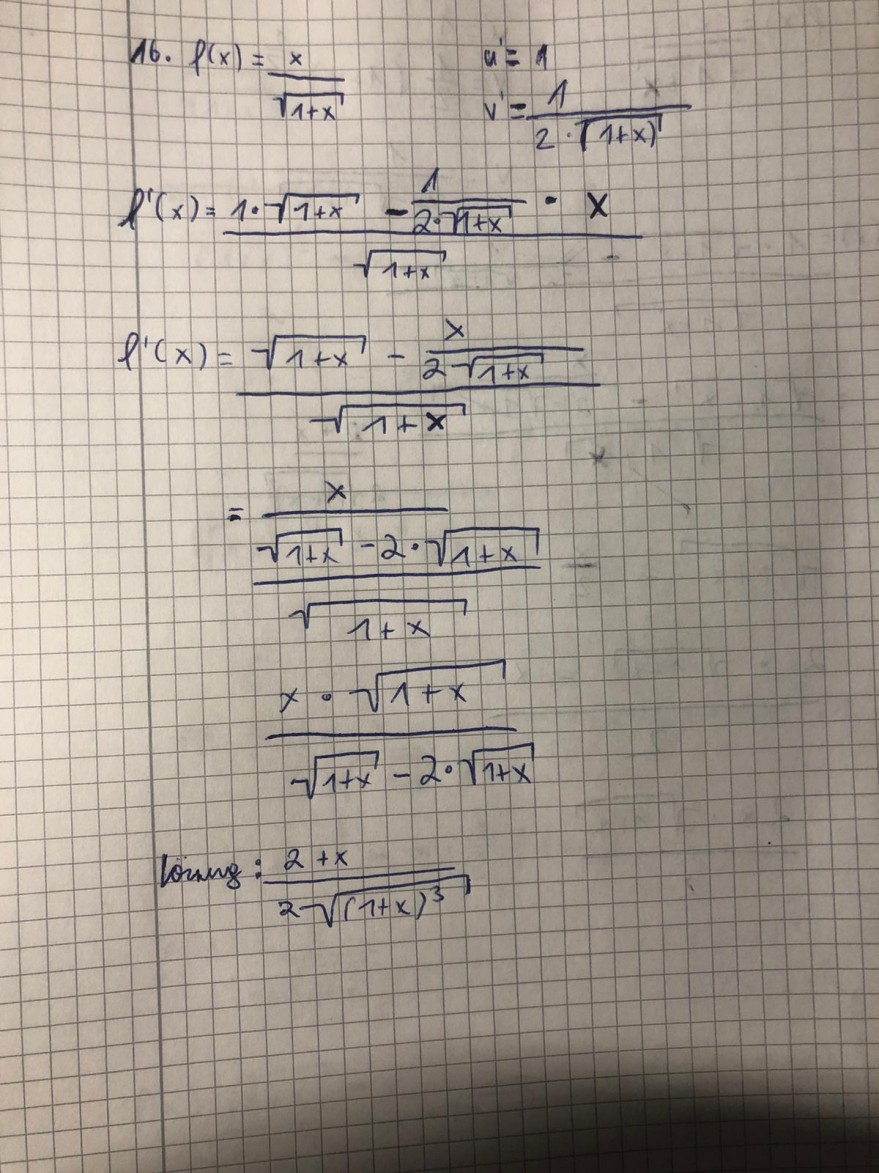 16. f(x) = x / √(1+x)    u' = 1
v' = 1 / (2 · √(1+x))
f'(x) = (1 · √(1+x) - 1 / (2 · √(1+x)) · x) / √(1+x)
f'(x) = (√(1+x) - x / (2√(1+x))) / √(1+x)
= (x / (√(1+x) - 2 · √(1+x))) / √(1+x)
(x · √(1+x)) / (√(1+x) - 2 · √(1+x))
Lösung: (2+x) / (2√((1+x)³))